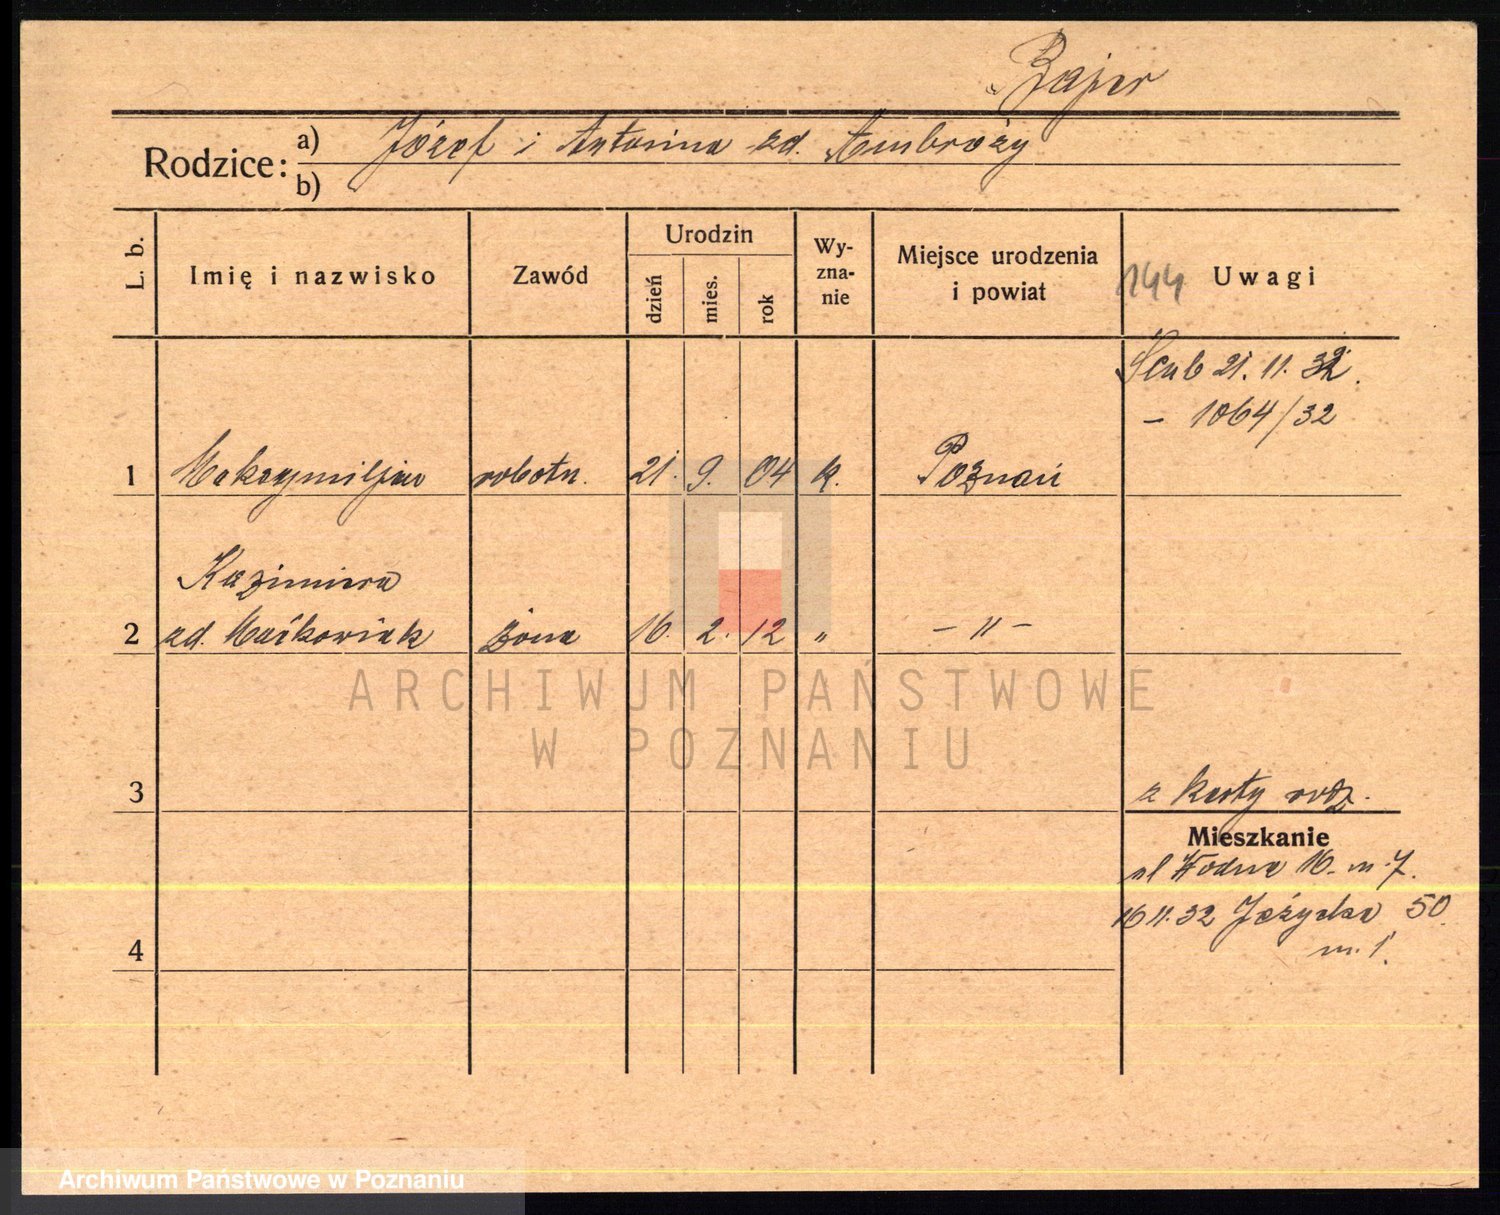 Bajer
Rodzice: a) Józef i Antonina zd. Ambroży
b)
L. b. Imię i nazwisko Zawód Urodzin dzień mies. rok Wy-zna-nie Miejsce urodzenia i powiat 144 Uwagi
Ślub 21. 11. 32.
- 1064/32
1 Maksymiljan robotn. 21. 9. 04 k. Poznań
Kazimiera
2 zd. Maćkowiak żona 16. 2. 12 " - " -
ARCHIWUM PAŃSTWOWE
W POZNANIU
3 z karty rodz.
Mieszkanie
ul Wodna 16. m. 7.
16 11. 32 Jeżycka 50.
4 m. 1.
Archiwum Państwowe w Poznaniu